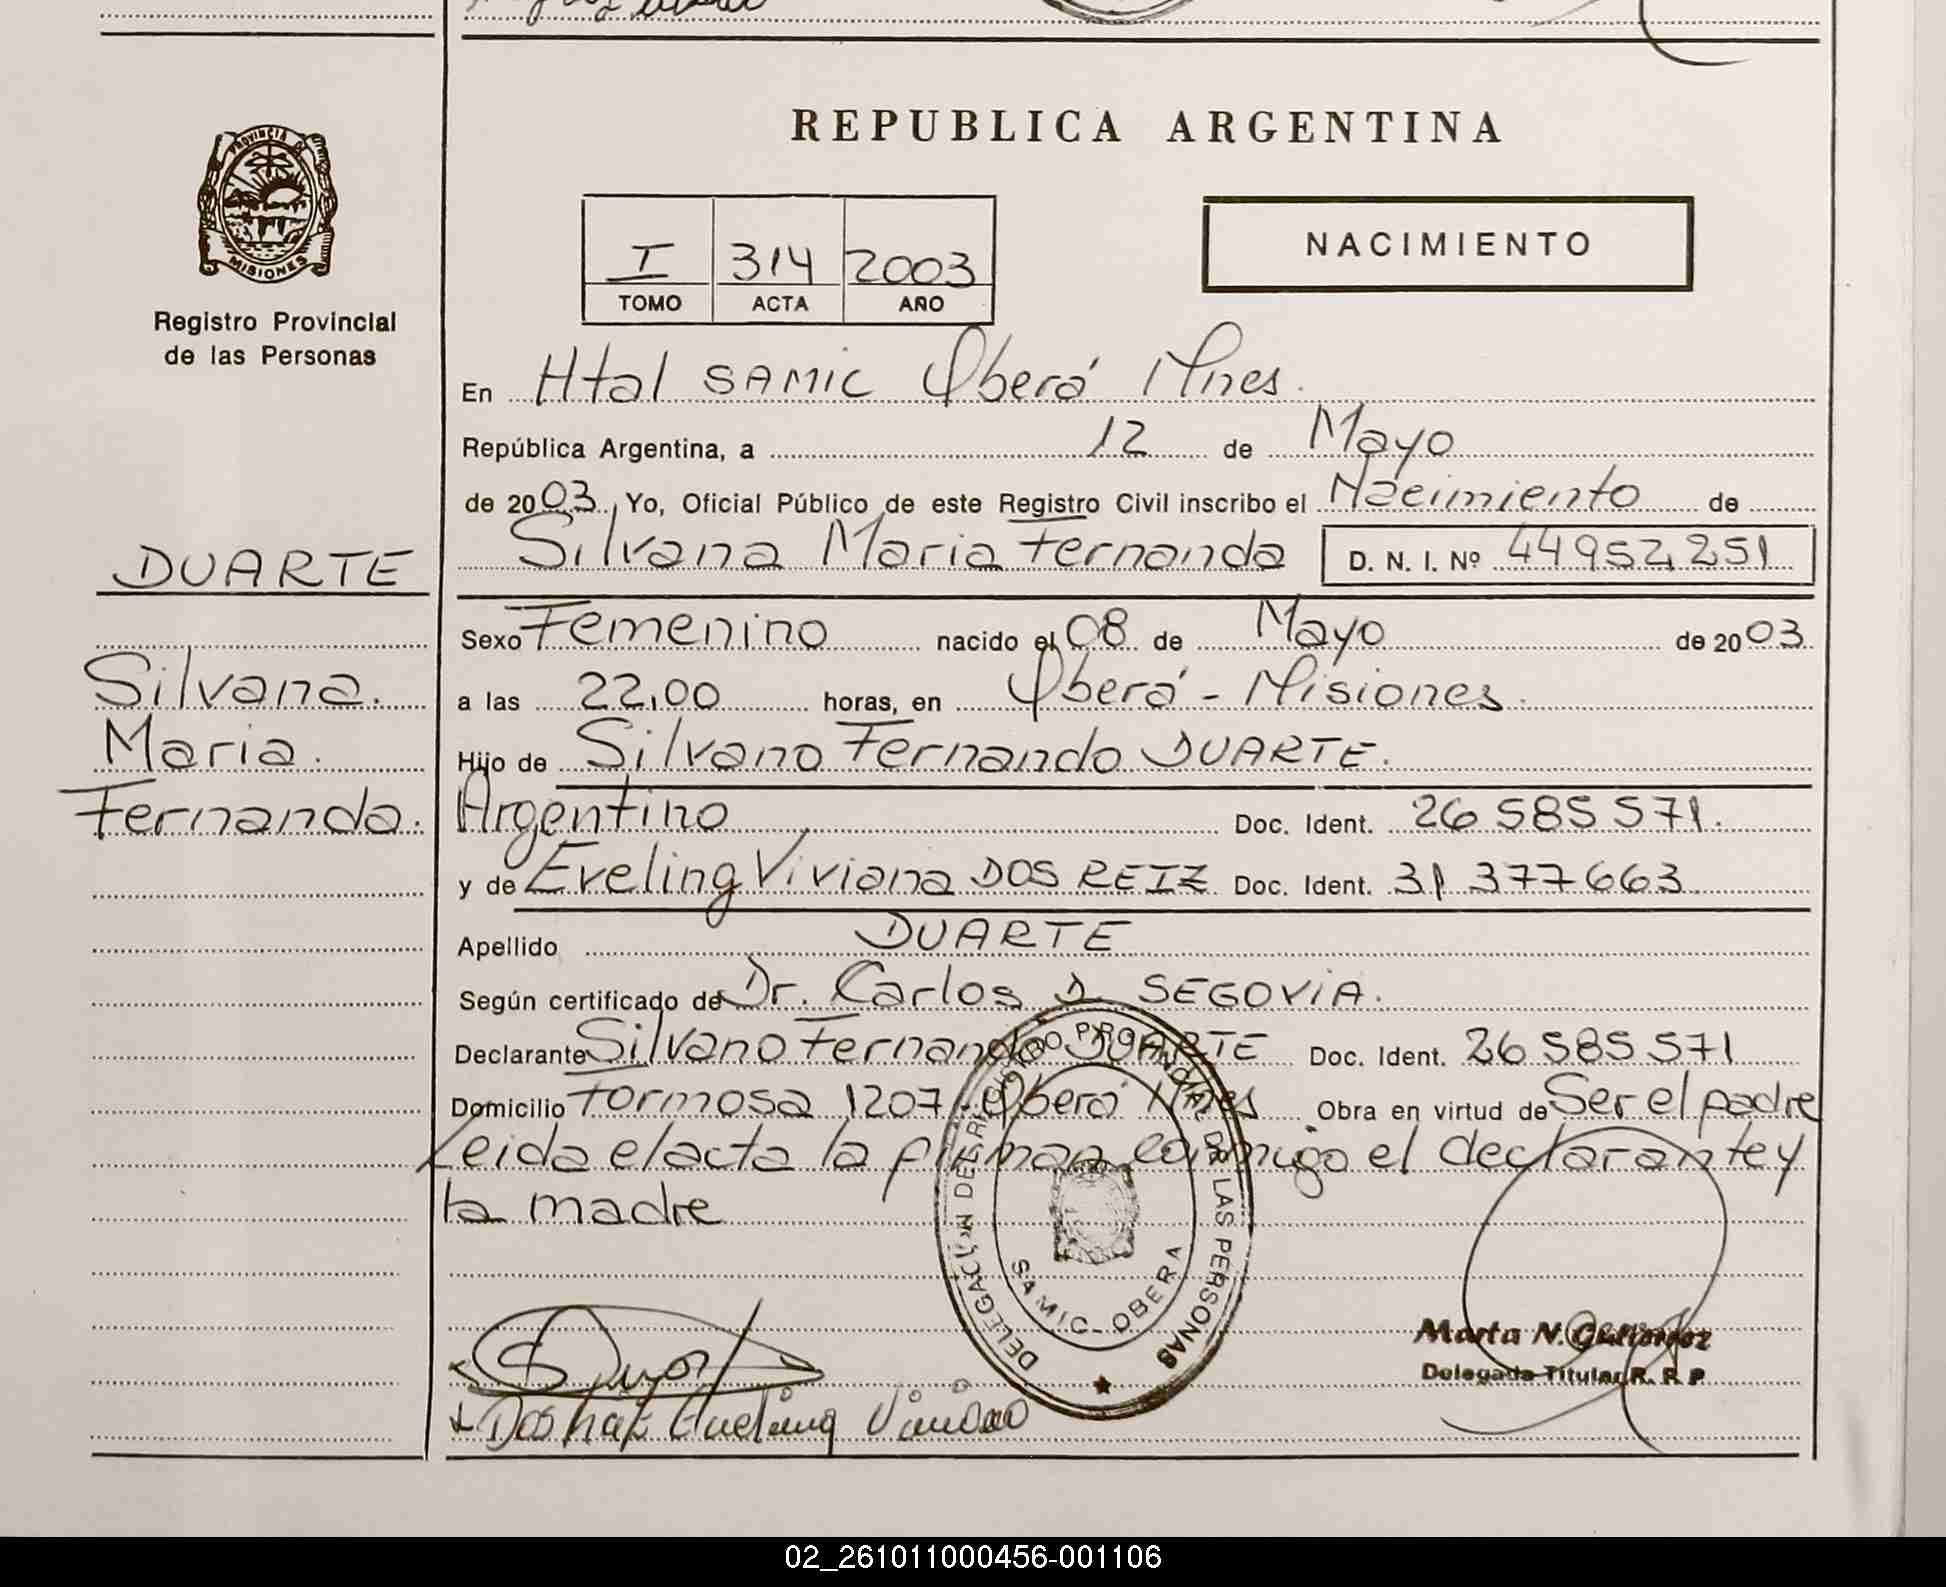 REPUBLICA ARGENTINA
PROVINCIA DE
MISIONES
Registro Provincial
de las Personas
I 314 2003
TOMO ACTA AÑO
NACIMIENTO
En Htal SAMIC Oberá Mnes.
República Argentina, a 12 de Mayo
de 2003. Yo, Oficial Público de este Registro Civil inscribo el Nacimiento de
Silvana Maria Fernanda D. N. I. Nº 44952251
DUARTE
Silvana.
Maria.
Fernanda.
Sexo Femenino nacido el 08 de Mayo de 2003.
a las 22,00 horas, en Oberá - Misiones.
Hijo de Silvano Fernando DUARTE.
Argentino Doc. Ident. 26 585 571.
y de Eveling Viviana DOS REIZ Doc. Ident. 31 377663
Apellido DUARTE
Según certificado de Dr. Carlos D. SEGOVIA.
Declarante Silvano Fernando DUARTE Doc. Ident. 26 585 571
Domicilio Formosa 1207. Oberá Mnes Obra en virtud de Ser el padre
Leida el acta la firman conmigo el declarante y
la madre
DELEGACION DEL REGISTRO PROVINCIAL DE LAS PERSONAS
SAMIC - OBERA
Marta N. Gutierrez
Delegada Titular R. P. P.
Eveling
02_261011000456-001106